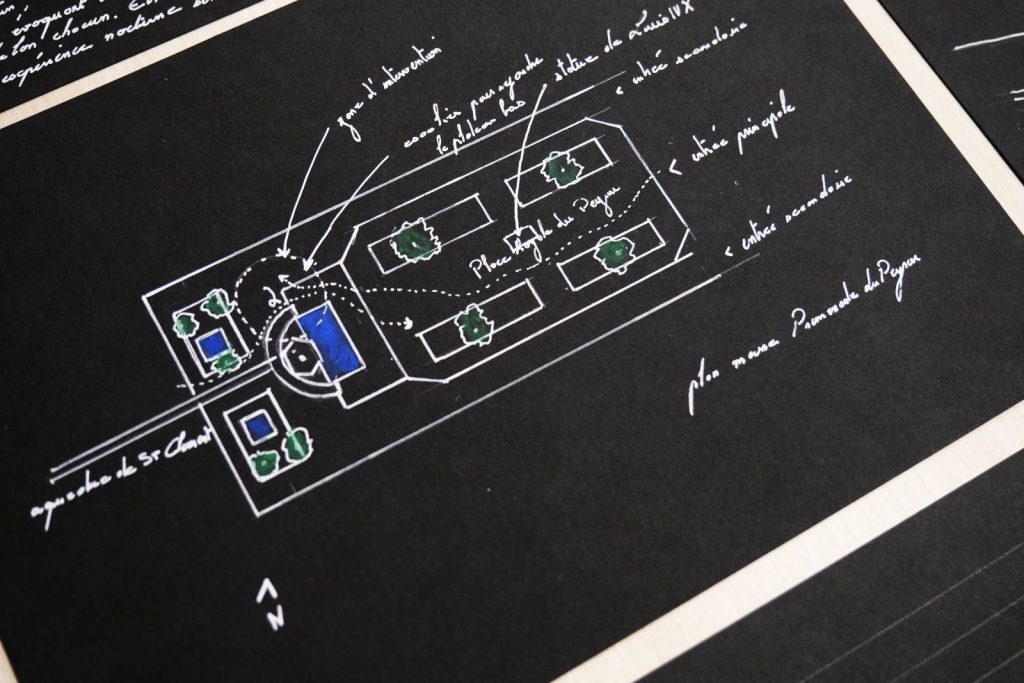 évoquant
chacun.
expérience nocturne
zone d'intervention
escalier pour rejoindre
le plateau bas
statue de Louis XIV
< entrée secondaire
< entrée principale
< entrée secondaire
Place Royale du Peyrou
2
plan masse Promenade du Peyrou
aqueduc de St Clément
N